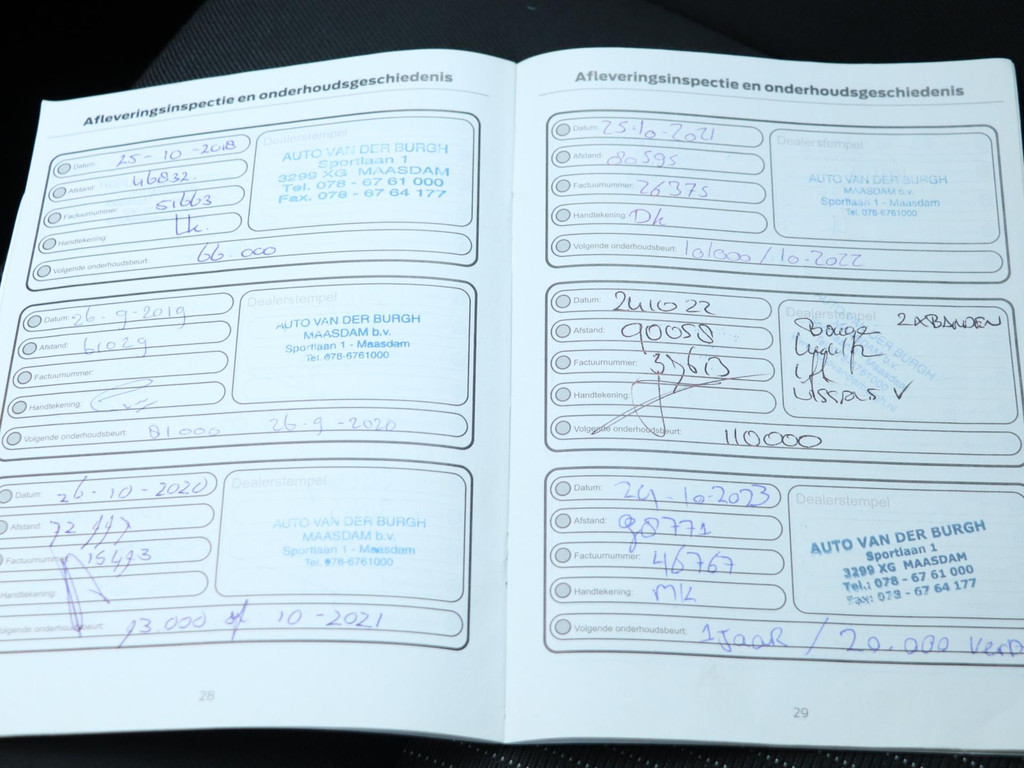 Afleveringsinspectie en onderhoudsgeschiedenis
Datum: 25-10-2018
Afstand: 46832.
Factuurnummer: 51663
Handtekening:
Volgende onderhoudsbeurt: 66.000
Dealerstempel
AUTO VAN DER BURGH
Sportlaan 1
3299 XG MAASDAM
Tel. 078 - 67 61 000
Fax. 078 - 67 64 177
Datum: 26-9-2019
Afstand: 61029
Factuurnummer:
Handtekening:
Volgende onderhoudsbeurt: 81000 26-9-2020
Dealerstempel
AUTO VAN DER BURGH
MAASDAM b.v.
Sportlaan 1 - Maasdam
Tel. 078-6761000
Datum: 26-10-2020
Afstand: 72
Factuurnummer: 15493
Handtekening:
Volgende onderhoudsbeurt: 93.000 of 10-2021
Dealerstempel
AUTO VAN DER BURGH
MAASDAM b.v.
Sportlaan 1 - Maasdam
Tel. 078-6761000
28
Afleveringsinspectie en onderhoudsgeschiedenis
Datum: 25-10-2021
Afstand: 80595
Factuurnummer: 26375
Handtekening: Dk
Volgende onderhoudsbeurt: 101000 / 10-2022
Dealerstempel
AUTO VAN DER BURGH
MAASDAM b.v.
Sportlaan 1 - Maasdam
Tel. 078-6761000
Datum: 241022
Afstand: 90058
Factuurnummer: 37613
Handtekening:
Volgende onderhoudsbeurt: 110000
Dealerstempel
2XBANDEN
Datum: 24-10-2023
Afstand: 98771
Factuurnummer: 46767
Handtekening: MK
Volgende onderhoudsbeurt: 1 JAAR / 20.000 verd
Dealerstempel
AUTO VAN DER BURGH
Sportlaan 1
3299 XG MAASDAM
Tel.: 078 - 67 61 000
Fax: 078 - 67 64 177
29